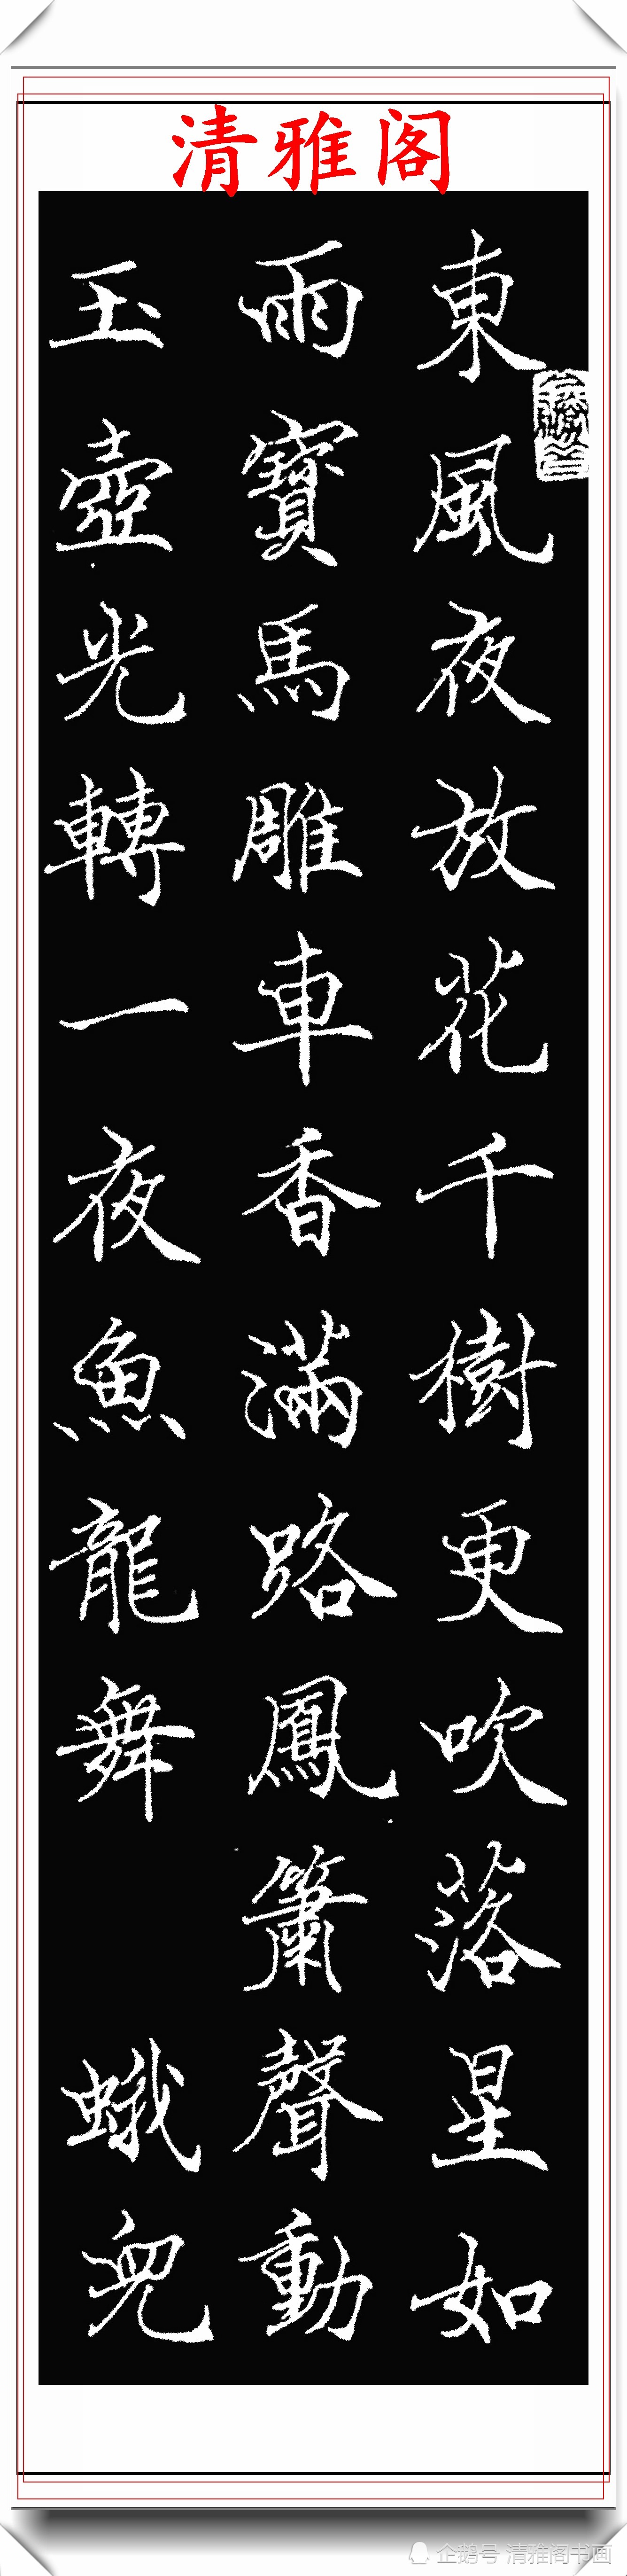 清雅阁
東風夜放花千樹更吹落星如
雨寶馬雕車香滿路鳳簫聲動
玉壺光轉一夜魚龍舞 蛾兒
企鹅号 清雅阁书画